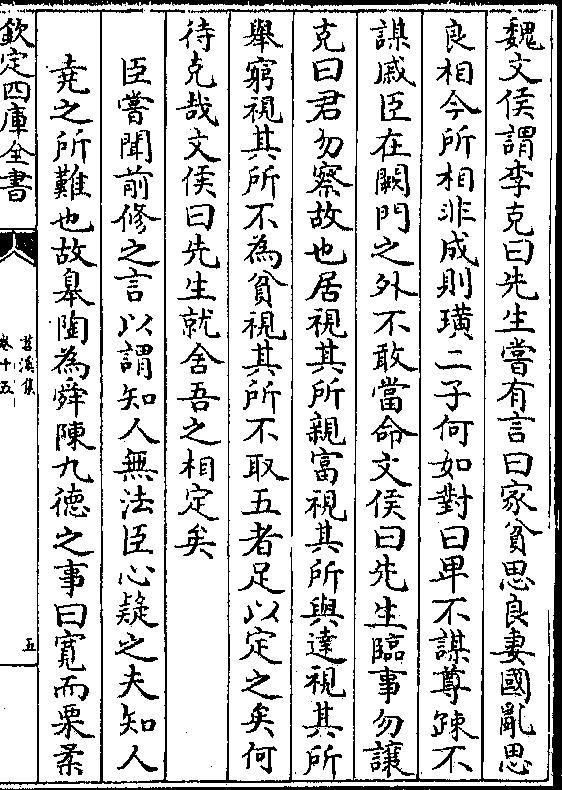 魏文侯謂李克曰先生嘗有言曰家貧思良妻國亂思
良相今所相非成則璜二子何如對曰卑不謀尊疎不
謀戚臣在闕門之外不敢當命文侯曰先生臨事勿讓
克曰君勿察故也居視其所親富視其所與達視其所
舉窮視其所不為貧視其所不取五者足以定之矣何
待克哉文侯曰先生就舍吾之相定矣
臣嘗聞前修之言以謂知人無法臣心疑之夫知人
堯之所難也故臯陶為舜陳九德之事曰寛而栗柔
欽定四庫全書
苕溪集
卷十五
五